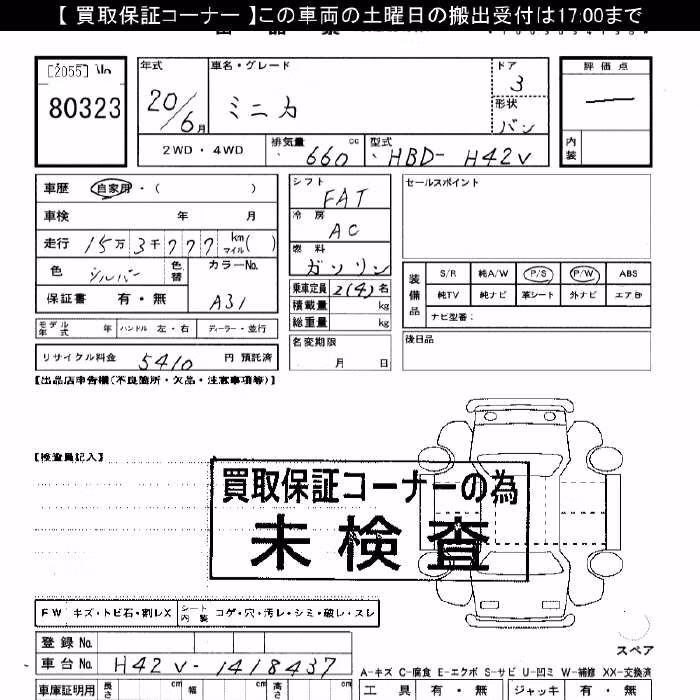 【 買取保証コーナー 】この車両の土曜日の搬出受付は17:00まで
[2055] No
80323
年式 20/6月
車名・グレード ミニカ
ドア 3
形状 バン
評価点
内装
2WD・4WD
排気量 660 cc
型式 HBD- H42V
車歴 自家用・( )
車検 年 月
走行 15万3千777 km マイル( )
色 シルバー 色替
カラーNo. A31
保証書 有・無
シフト FAT
冷房 AC
燃料 ガソリン
乗車定員 2(4)名
積載量 kg
総重量 kg
名変期限 月 日
セールスポイント
装備品
S/R 純A/W P/S P/W ABS
純TV 純ナビ 革シート 外ナビ エアB
ナビ型番:
後日品
モデル年式 年 ハンドル 左・右 ディーラー・並行
リサイクル料金 5410 円 預託済
【出品店申告欄(不良箇所・欠品・注意事項等)】
【検査員記入】
買取保証コーナーの為
未検査
FW キズ・トビ石・割レX
シート内装 コゲ・穴・汚レ・シミ・破レ・スレ
スペア
登録No.
車台No. H42V-1418437
A-キズ C-腐食 E-エクボ S-サビ U-凹ミ W-補修 XX-交換済
車庫証明用 長さ cm 幅 cm 高さ cm
工具 有・無 ジャッキ 有・無